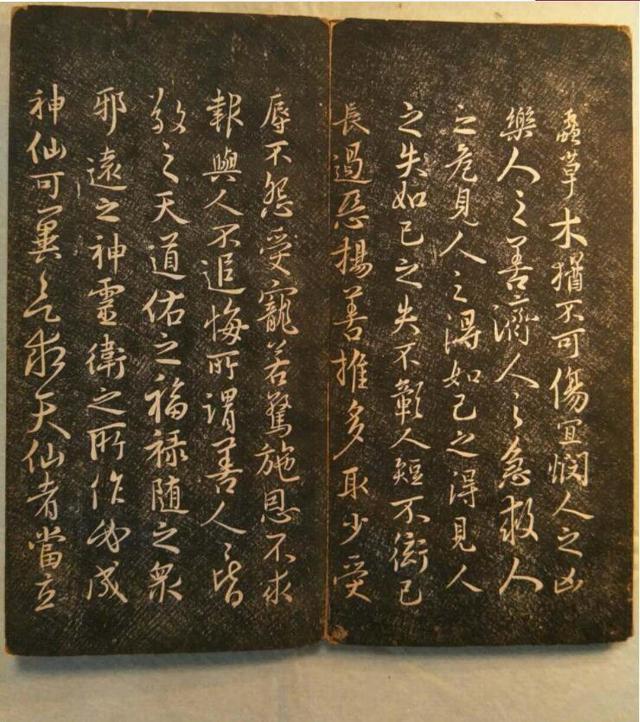 蟲草木猶不可傷宜憫人之凶
樂人之善濟人之急救人
之危見人之得如己之得見人
之失如己之失不彰人短不衒己
長遏惡揚善推多取少受
辱不怨受寵若驚施恩不求
報與人不追悔所謂善人〻皆
敬之天道佑之福祿随之衆
邪遠之神靈衛之所作必成
神仙可冀欲求天仙者當立